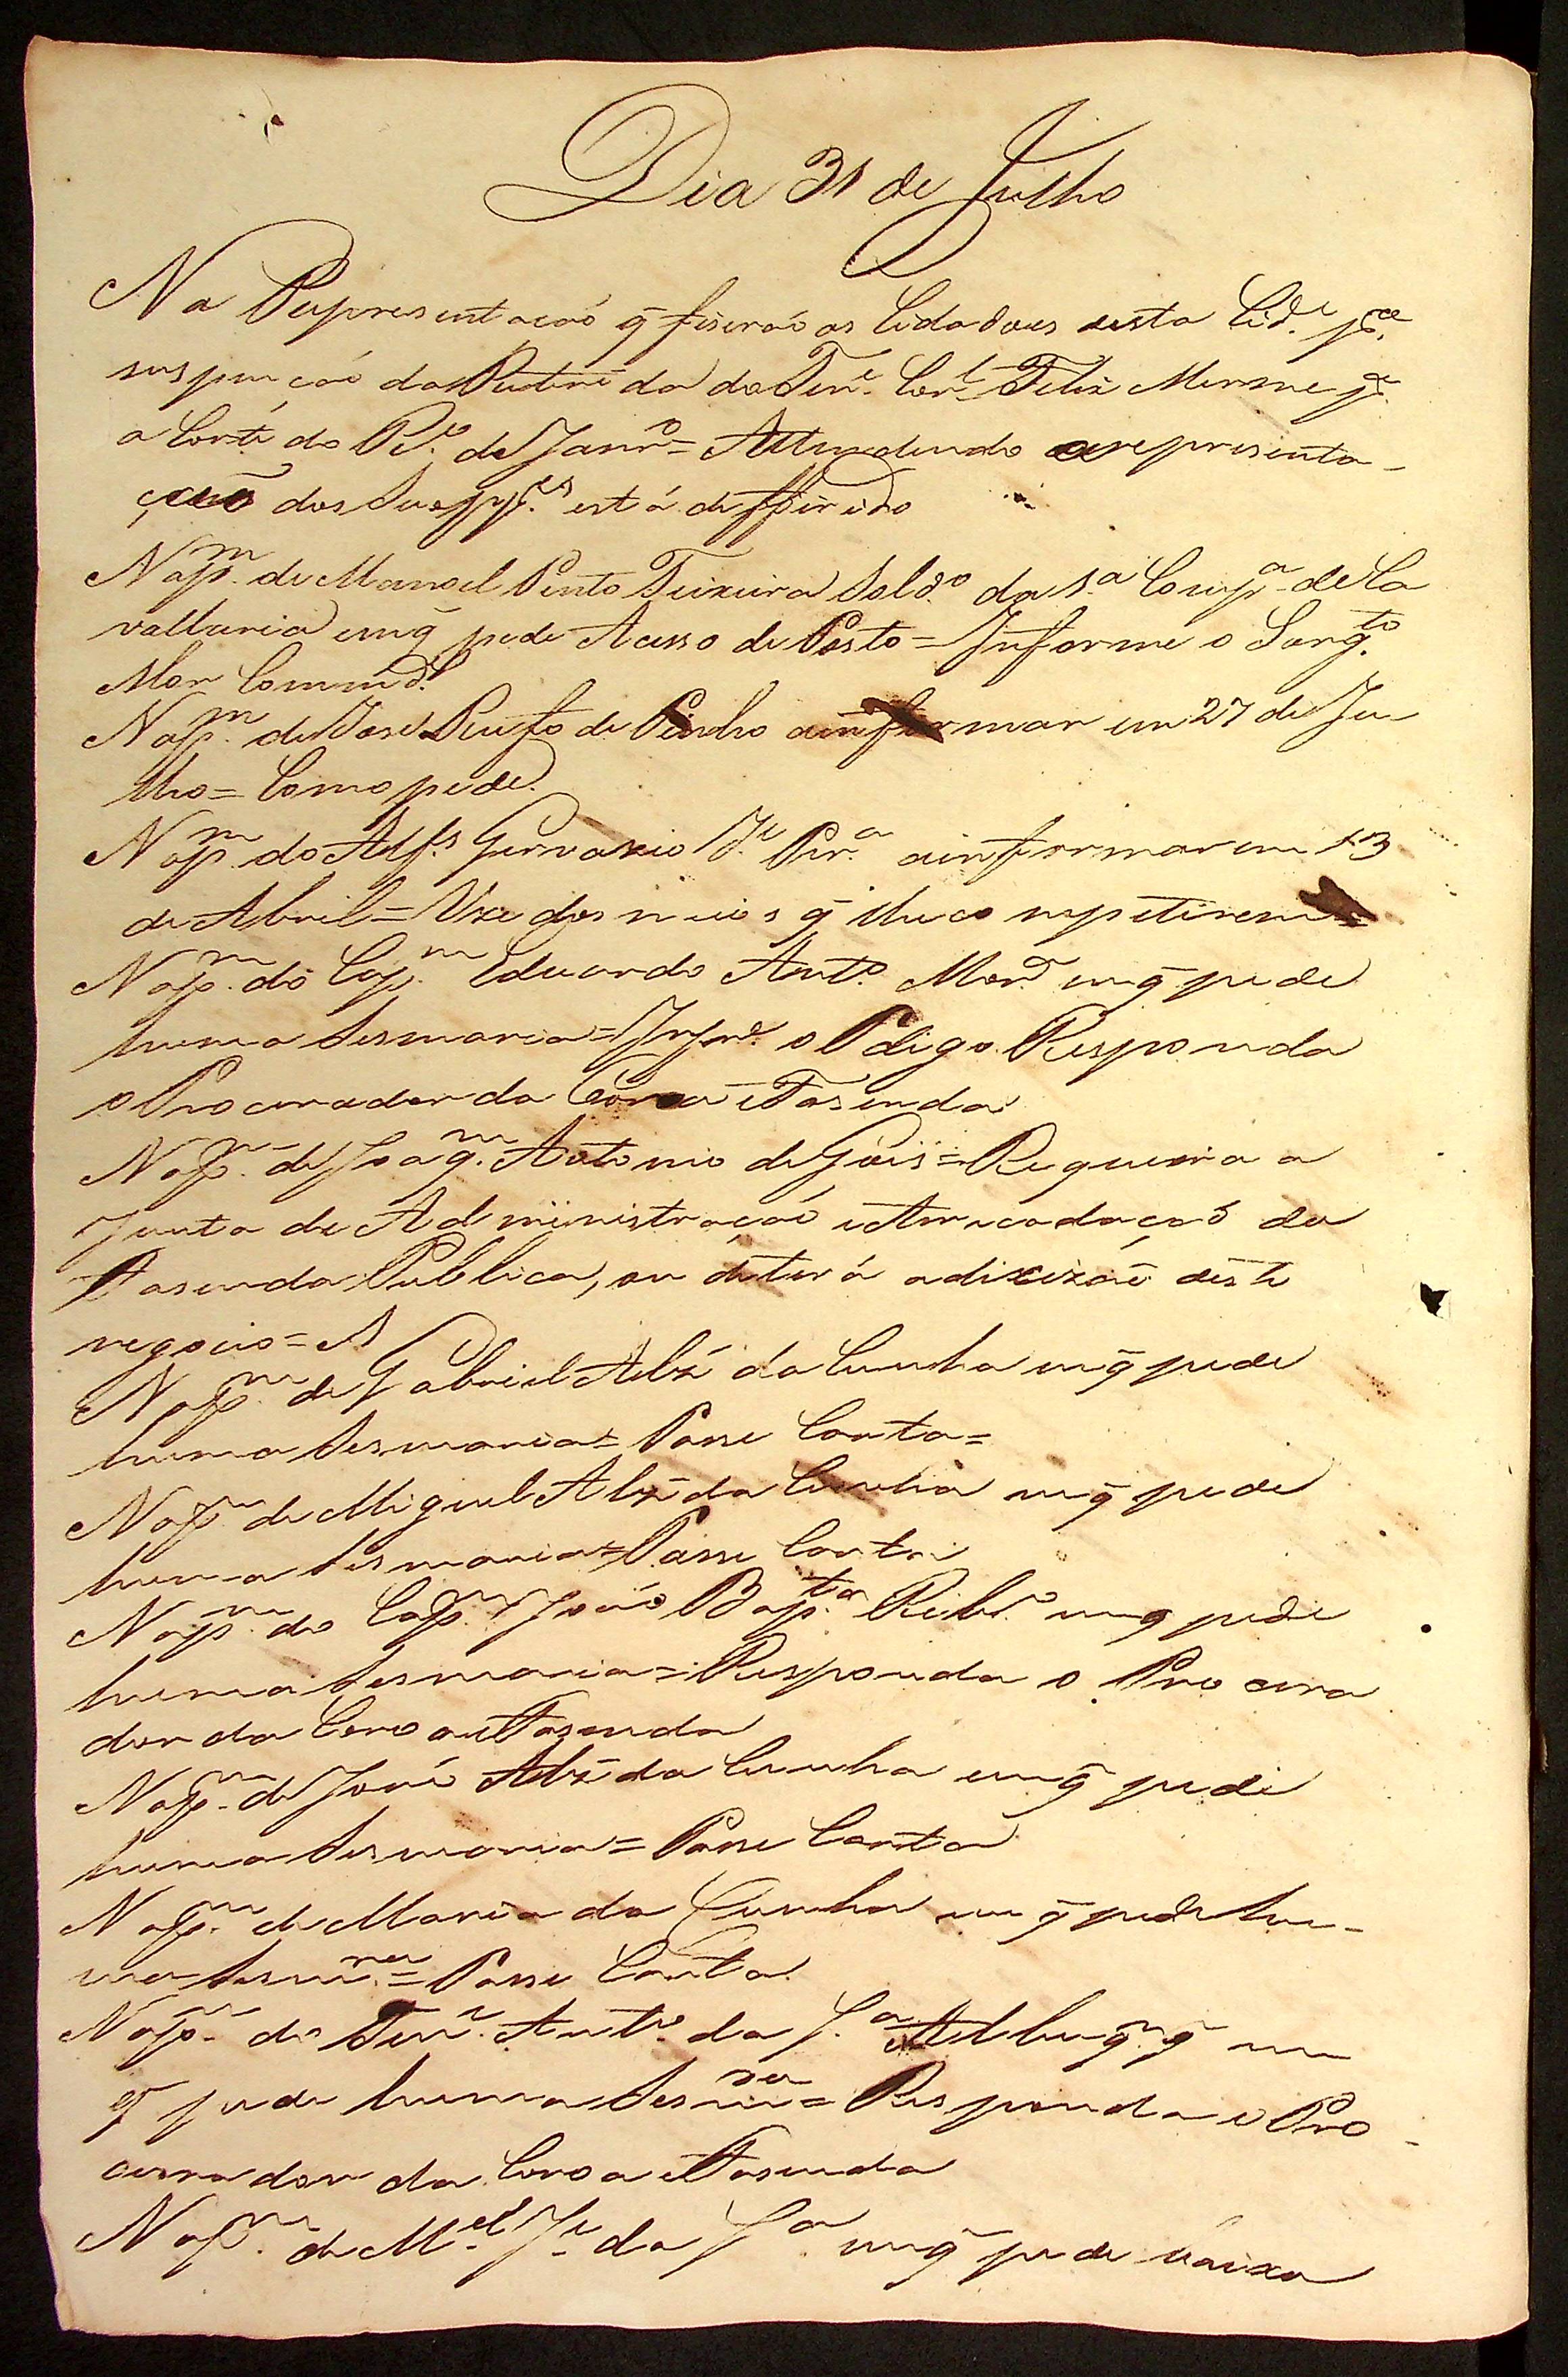 Dia 31 de Julho
Na Reprezentacaõ q̃ fiseraõ os Cidadoens desta Cid.e p.a
suspencaõ da Retirada do Ten.e Cor.l Felix Merme p.a
a Corte do R.o de Janr.o = Attendendo a reprezenta-
çaõ dos Supp.es está defferido
N ap.m de Manoel Pinto Teixeira Sold.o da 1.a Comp.a de Ca
vallaria em q̃ pede Acesso de Posto = Informe o Sarg.to
Mor Command.e
N ap.m de Jose Rufo de Pinho a informar em 27 de Ju-
lho = Como pede.
N ap.m do Alf.s Gervasio J.e Per.a a informar em 13
de Abril = Uze dos meios q̃ lhe competirem =
N ap.m do Cap.m Eduardo Ant.o em q̃ pede
huma Sesmaria = o digo Responda
o Procurador da Coroa e Fasenda
N ap.m de Joaq.m Antonio de Góis = Requeira a
Junta de Administraçaõ e Arrecadaçaõ da
Fasenda Publica, onde terá a dicizaõ deste
negocio =
N ap.m de Gabriel Alz̃ da Cunha em q̃ pede
huma Sesmaria = Passe Carta =
N ap.m de Miguel Alz̃ da Cunha em q̃ pede
huma Sesmaria = Passe Carta
N ap.m do Cap.m Joaõ Bap.ta Ribr.o em q̃ pede
huma Sesmaria = Responda o Procura
dor da Coroa e Fasenda
N ap.m de José Alz̃ da Cunha em q̃ pede
huma Sesmaria = Passe Carta
N ap.m de Maria da Cunha em q̃ pede hu-
ma Sesm.ra = Passe Carta
N ap.m do Ten.e Ant.o da S.a em
q̃ pede huma Sesm.ra = Responda o Pro-
curador da Coroa e Fasenda
N ap.m de M.el J.e da S.a em q̃ pede baixa